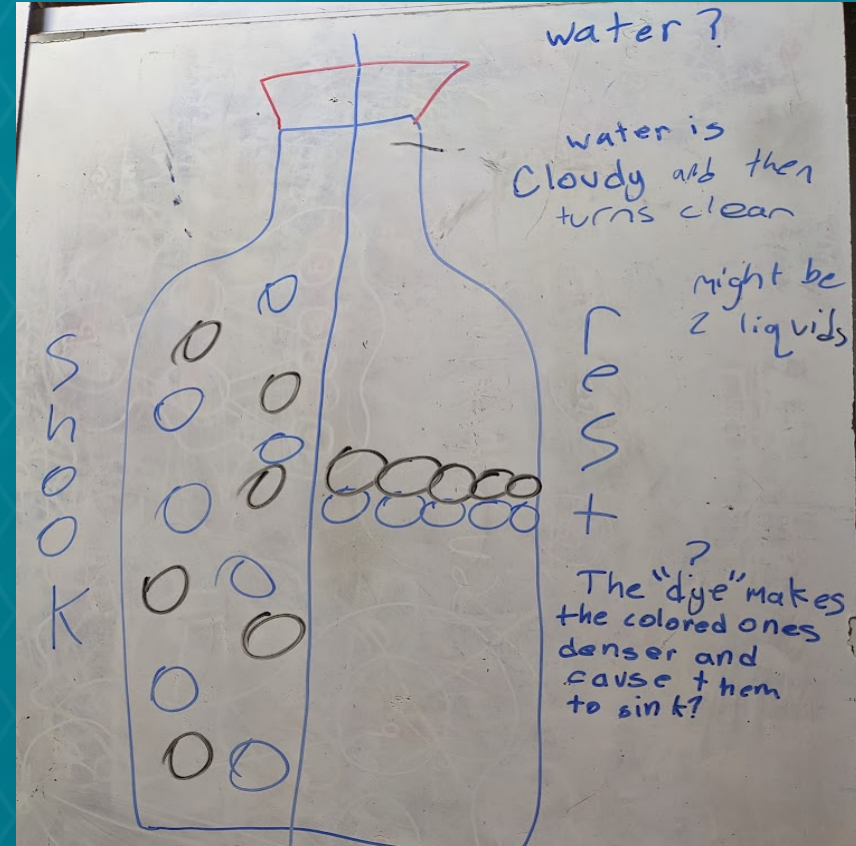 water ?
water is
Cloudy and then
turns clear
might be
2 liquids
shook
rest
?
The "dye" makes
the colored ones
denser and
cause them
to sink?